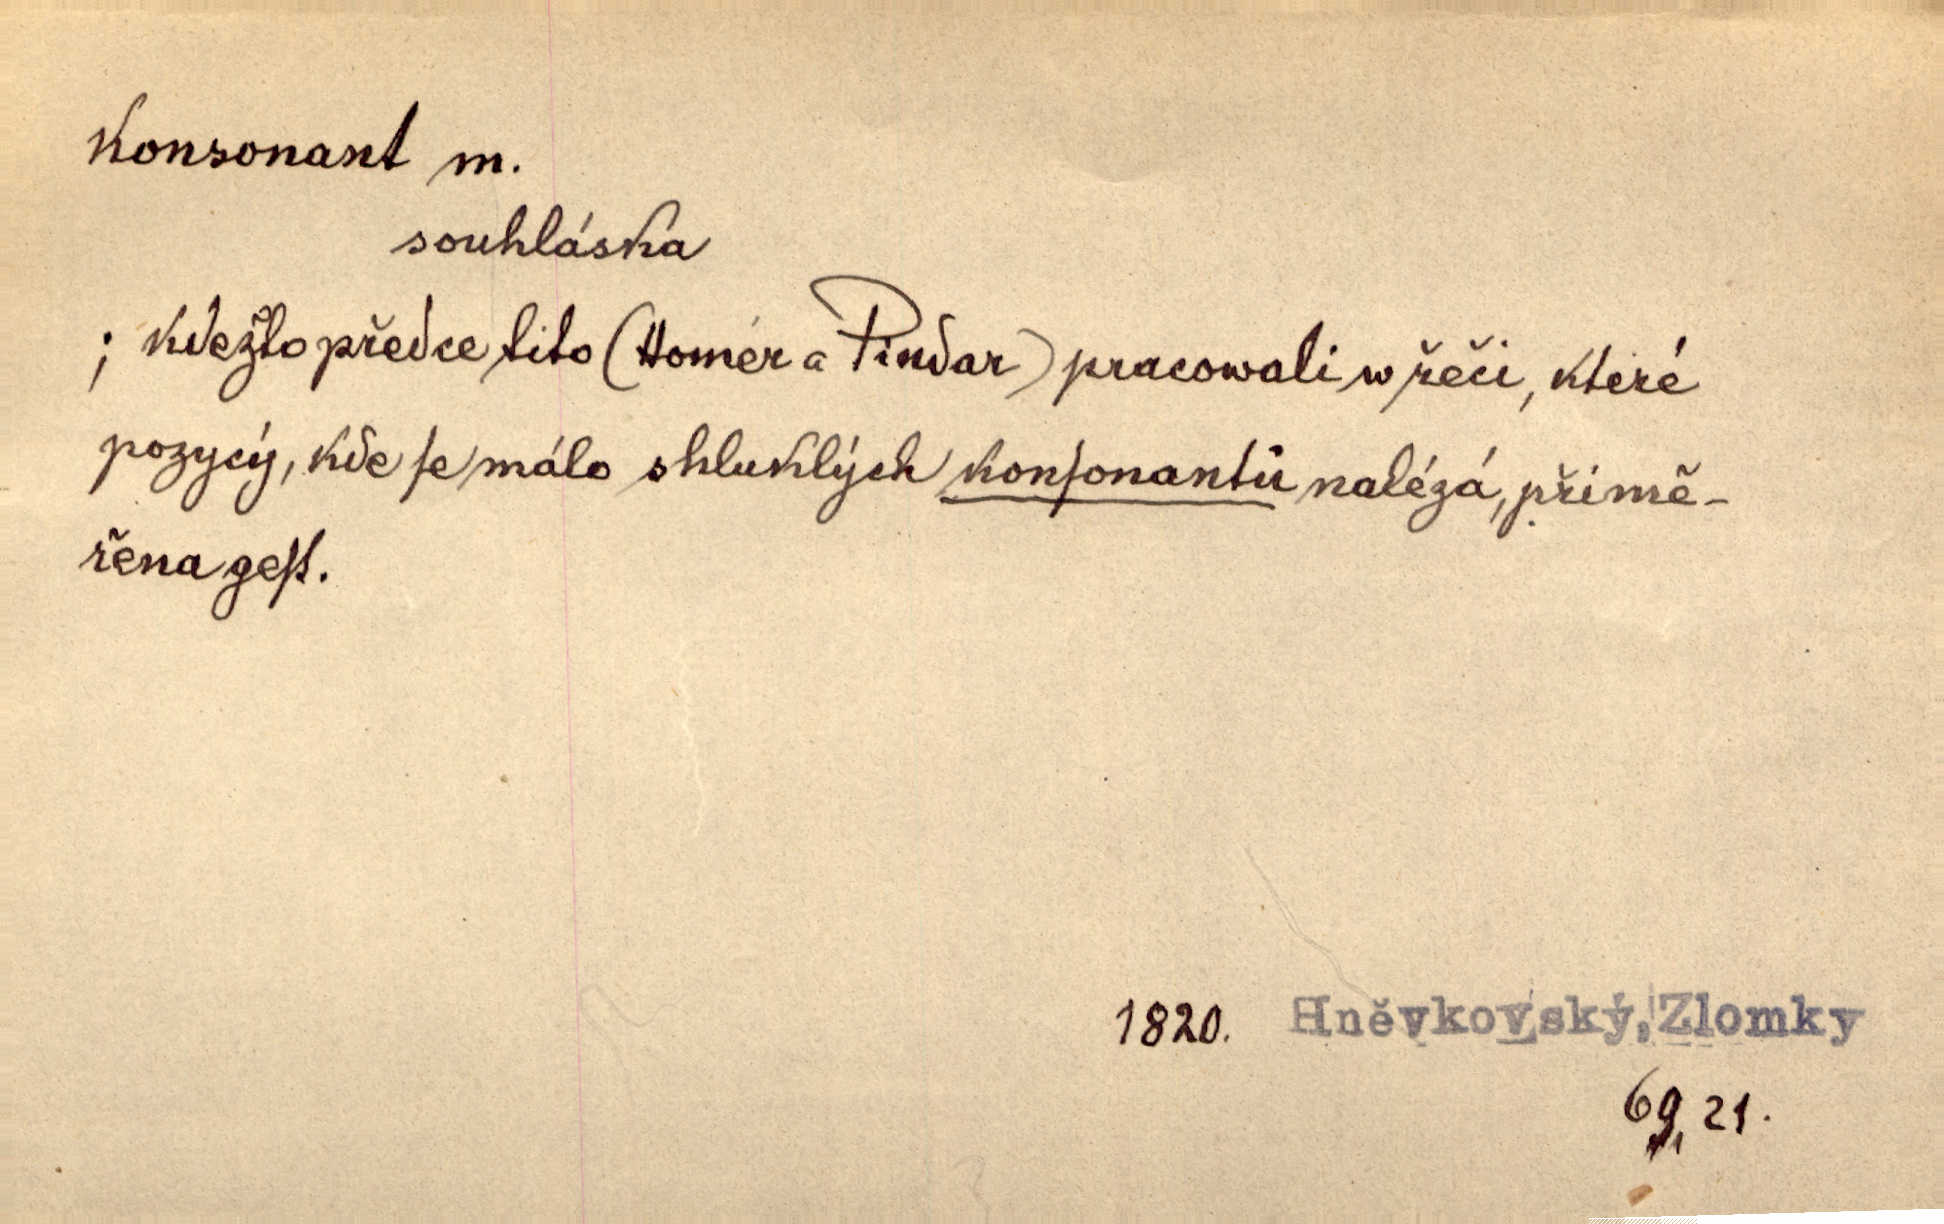 Konsonant m.
souhláska
; kdežto předce tito (Homér a Pindar) pracowali w řeči, které
pozycý, kde ſe málo shluklých konſonantů nalézá, přimě-
řena geſt.
1820. Hněvkovský, Zlomky
69, 21.